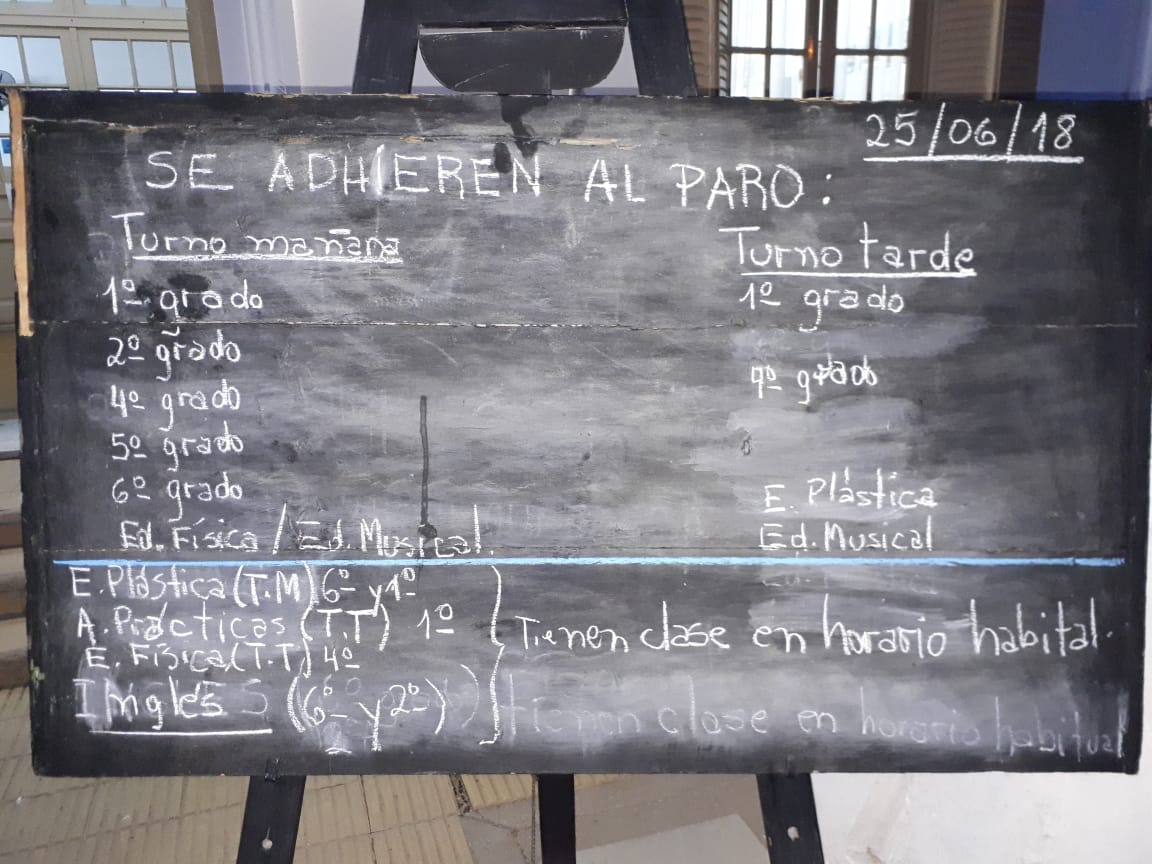 25/06/18
SE ADHIEREN AL PARO:
Turno mañana
1º grado
2º grado
4º grado
5º grado
6º grado
Ed. Física / Ed. Musical.
Turno tarde
1º grado
4º grado
E. Plástica
Ed. Musical
E. Plástica (T.M) 6º y 1º
A. Prácticas (T.T) 1º
E. Física (T.T) 4º
Inglés (6º y 2º)
Tienen clase en horario habital.
tienen clase en horario habitual